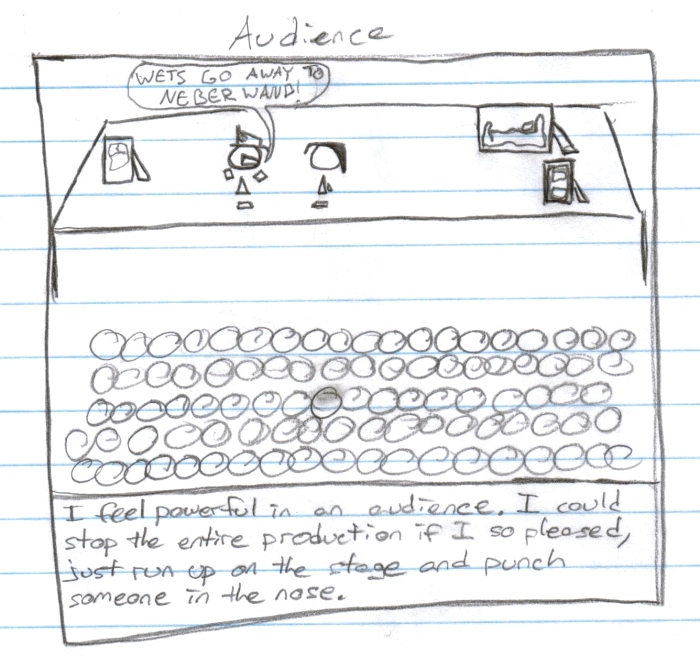 Audience
WETS GO AWAY TO
NEBER WAND!
I feel powerful in an audience. I could
stop the entire production if I so pleased,
just run up on the stage and punch
someone in the nose.